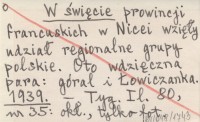 o W święcie prowincji
francuskich w Nicei wzięły
udział regionalne grupy
polskie. Oto wdzięczna
para: góral i Łowiczanka.
1939. Tyg. Il. 80,
nr 35: okł., tylko fot.